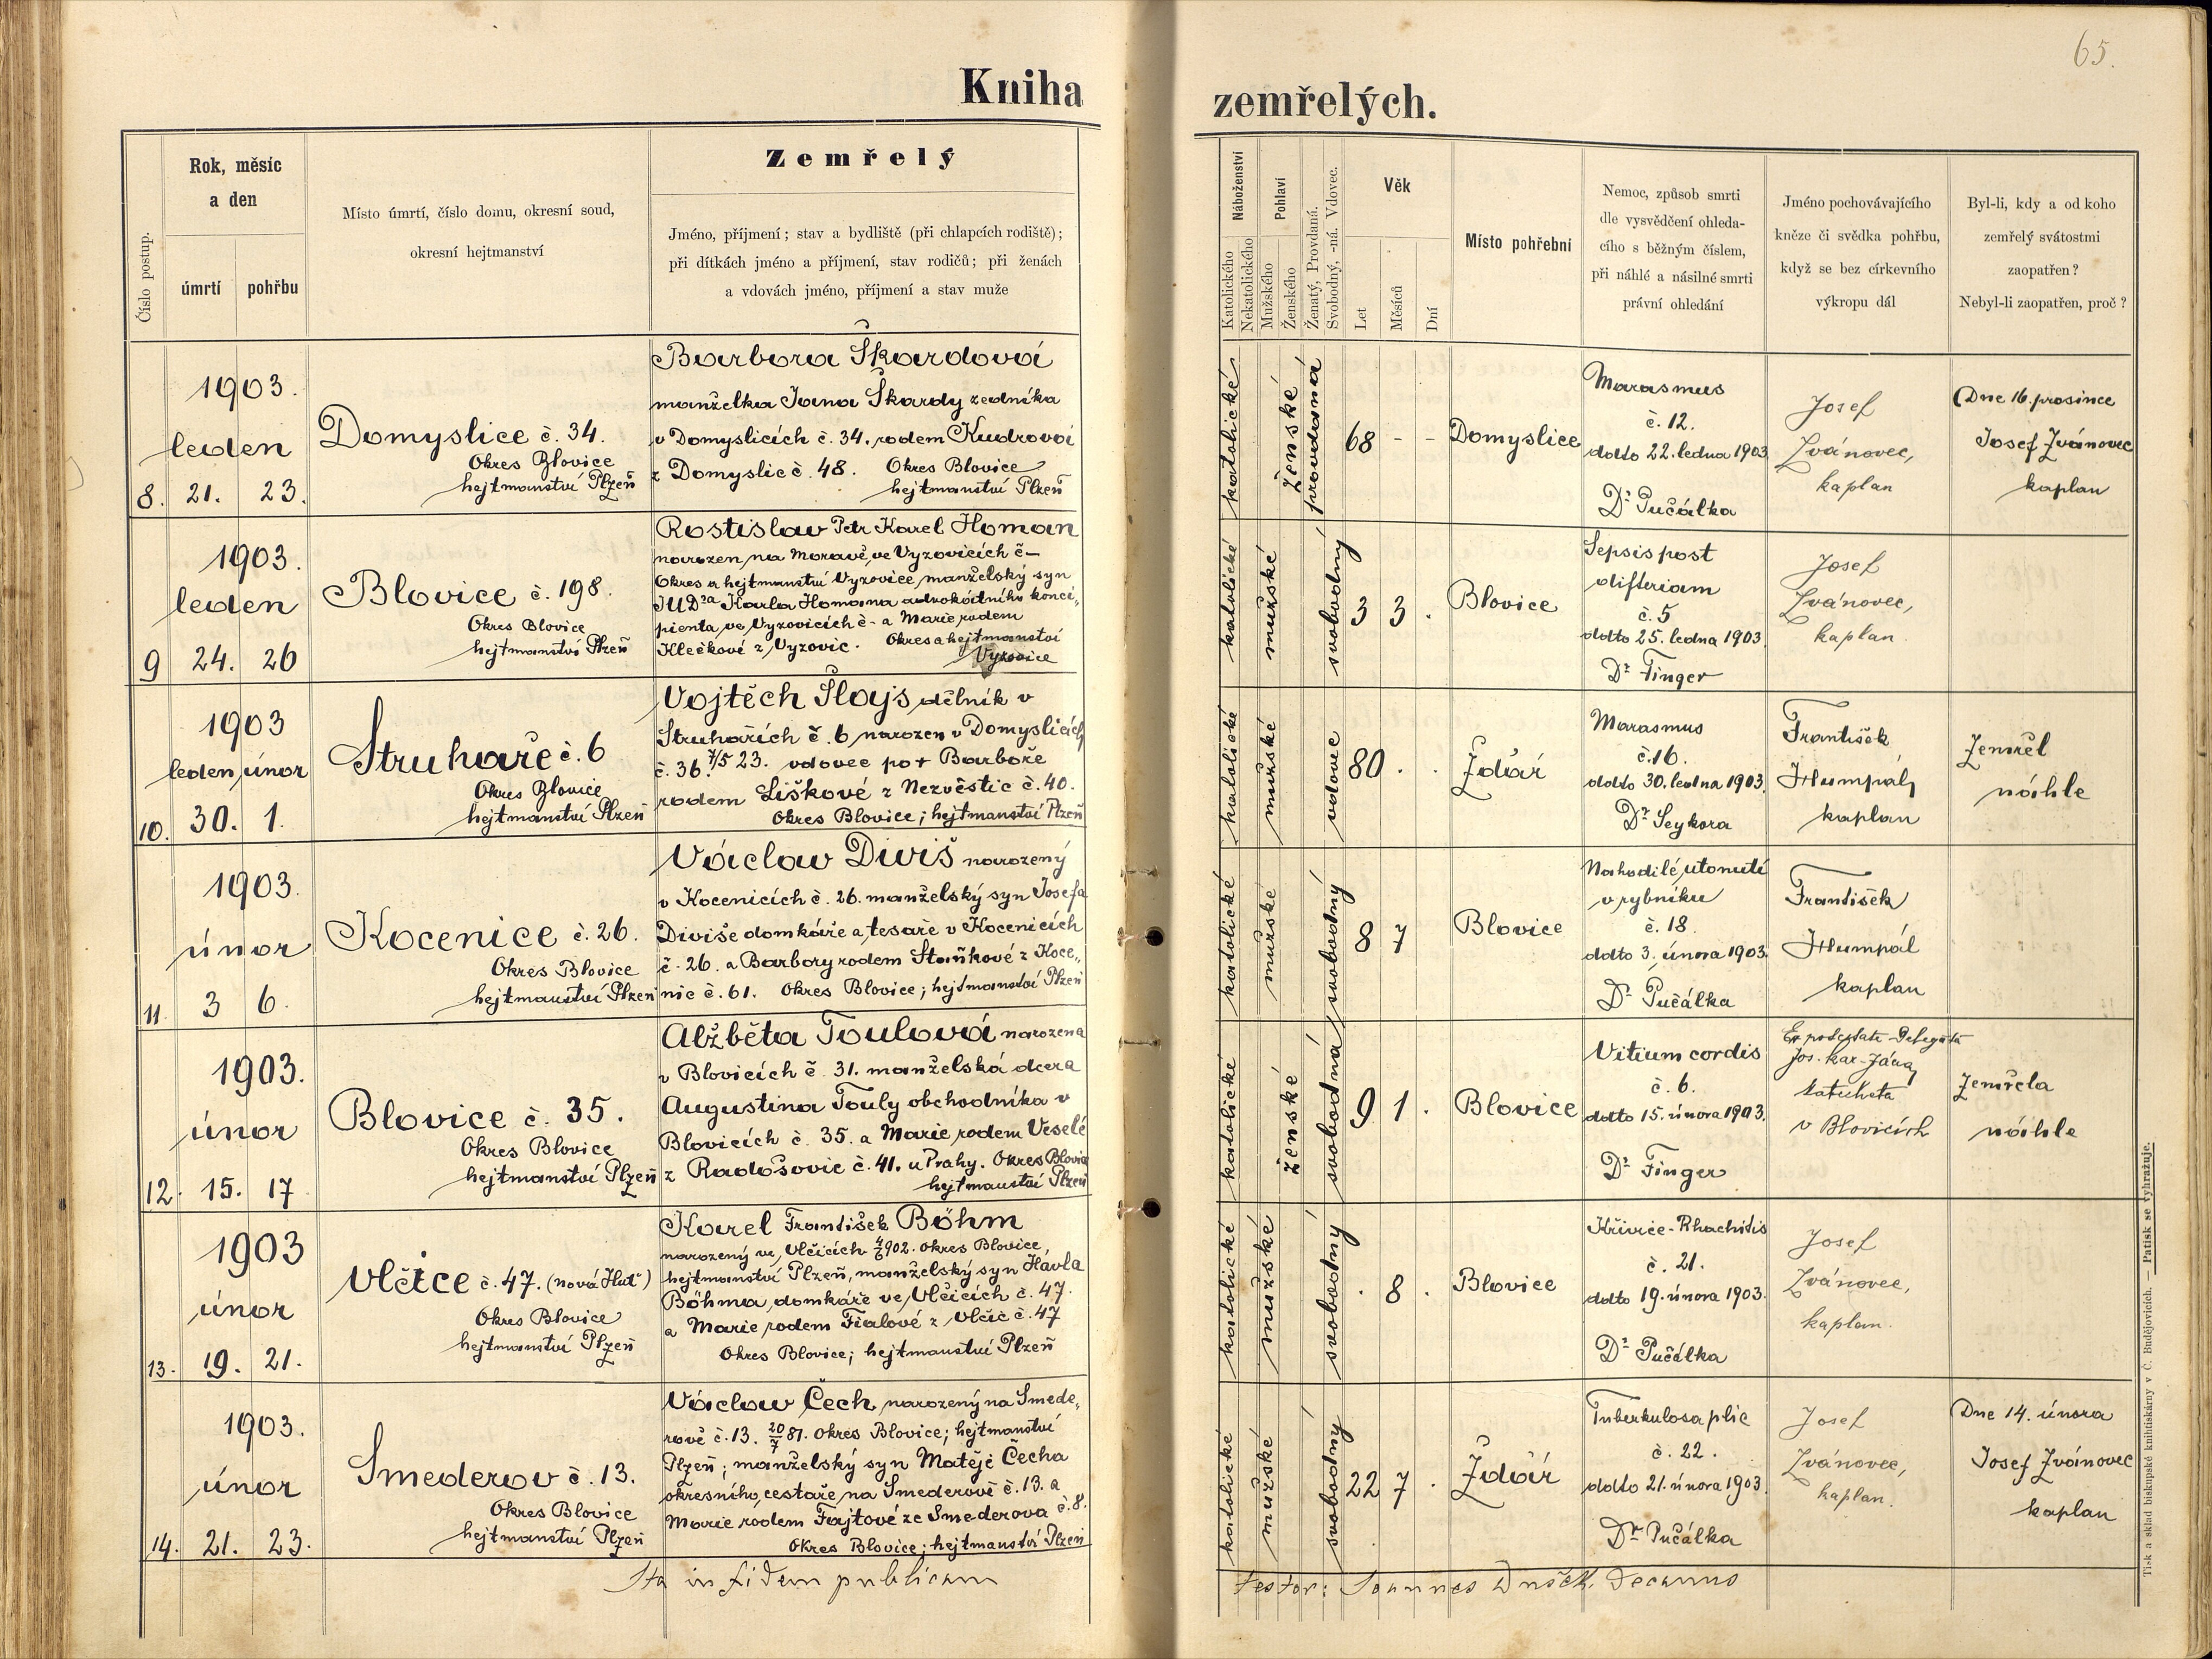 65.
Kniha zemřelých.
Číslo postup.
Rok, měsíc
a den
úmrtí
pohřbu
Místo úmrtí, číslo domu, okresní soud,
okresní hejtmanství
Zemřelý
Jméno, příjmení; stav a bydliště (při chlapcích rodiště);
při dítkách jméno a příjmení, stav rodičů; při ženách
a vdovách jméno, příjmení a stav muže
Náboženství
Katolického
Nekatolického
Pohlaví
Mužského
Ženského
Ženatý, Provdaná.
Svobodný, -ná. Vdovec.
Věk
Let
Měsíců
Dní
Místo pohřební
Nemoc, způsob smrti
dle vysvědčení ohleda-
cího s běžným číslem,
při náhlé a násilné smrti
právní ohledání
Jméno pochovávajícího
kněze či svědka pohřbu,
když se bez církevního
výkropu dál
Byl-li, kdy a od koho
zemřelý svátostmi
zaopatřen?
Nebyl-li zaopatřen, proč?
8.
1903.
leden
21. 23.
Domyslice č. 34.
Okres Blovice
hejtmanství Plzeň
Barbora Škardová
manželka Jana Škardy zedníka
v Domyslicích č. 34. rodem Kudrová
z Domyslic č. 48. Okres Blovice
hejtmanství Plzeň
katolické
Ženské
provdaná
68 - -
Domyslice
Marasmus
č. 12.
ddto 22. ledna 1903
Dr. Pučálka
Josef
Zvánovec,
kaplan
Dne 16. prosince
Josef Zvánovec
kaplan
9
1903.
leden
24. 26
Blovice č. 198.
Okres Blovice
hejtmanství Plzeň
Rostislav Petr Karel Homan
narozen na Moravě, ve Vyzovicích č –
Okres a hejtmanství Vyzovice, manželský syn
JUDra Karla Homana advokátního konci„
pienta, ve Vyzovicích č - a Marie rodem
Klečkové z Vyzovic. Okres a hejtmanství
Vyzovice
katolické
mužské
svobodný
3 3 .
Blovice
Sepsis post
difteriam
č. 5
ddto 25. ledna 1903.
Dr. Finger
Josef
Zvánovec,
kaplan.
10.
1903
leden, únor
30. 1.
Struhaře č. 6
Okres Blovice
hejtmanství Plzeň
Vojtěch Šlajs dělník v
Struhařích č. 6, narozen v Domyslicích
č. 36. 7/5 23. vdovec po + Barboře
rodem Liškové z Nezvěstic č. 40.
Okres Blovice; hejtmanství Plzeň
katolické
mužské
vdovec
80 . .
Ždár
Marasmus
č. 16.
ddto 30. ledna 1903.
Dr. Seykora
František
Humpál,
kaplan
Zemřel
náhle
11.
1903.
únor
3 6.
Kocenice č. 26.
Okres Blovice
hejtmanství Plzeň
Václav Diviš narozený
v Kocenicích č. 26. manželský syn Josefa
Diviše domkáře a tesaře v Kocenicích
č. 26. a Barbory rodem Staňkové z Koce„
nic č. 61. Okres Blovice; hejtmanství Plzeň
katolické
mužské
svobodný
8 7
Blovice
Nahodilé, utonutí
v rybníku
č. 18.
ddto 3. února 1903.
Dr. Pučálka
František
Humpál
kaplan
12.
1903.
únor
15. 17
Blovice č. 35.
Okres Blovice
hejtmanství Plzeň
Alžběta Toulová narozena
v Blovicích č. 31. manželská dcera
Augustina Touly obchodníka v
Blovicích č. 35. a Marie rodem Veselé
z Radošovic č. 41. u Prahy. Okres Blovice
hejtmanství Plzeň
katolické
Ženské
svobodná
9 1 .
Blovice
Vitium cordis
č. 6.
ddto 15. února 1903.
Dr. Finger
Jos. Kar.
katecheta
v Blovicích
Zemřela
náhle
13.
1903
únor
19. 21.
Vlčice č. 47. (nová Huť)
Okres Blovice
hejtmanství Plzeň
Karel František Böhm
narozený ve Vlčicích 4/6 902. Okres Blovice,
hejtmanství Plzeň, manželský syn Havla
Böhma, domkáře ve Vlčicích č. 47.
a Marie rodem Fialové z Vlčic č. 47
Okres Blovice; hejtmanství Plzeň
katolické
mužské
svobodný
. 8 .
Blovice
Křivice - Rhachitis
č. 21.
ddto 19. února 1903.
Dr. Pučálka
Josef
Zvánovec,
kaplan.
14.
1903.
únor
21. 23.
Smederov č. 13.
Okres Blovice
hejtmanství Plzeň
Václav Čech, narozený na Smede„
rově č. 13. 20/7 81. Okres Blovice; hejtmanství
Plzeň; manželský syn Matěje Čecha
okresního cestaře, na Smederově č. 13. a
Marie rodem Fajtové ze Smederova č. 8.
Okres Blovice; hejtmanství Plzeň
katolické
mužské
svobodný
22 7 .
Ždár
Tuberkulosa plic
č. 22.
ddto 21. února 1903.
Dr. Pučálka
Josef
Zvánovec,
kaplan.
Dne 14. února
Josef Zvánovec
kaplan
Ita in fidem publicam
testor: Joannes Dušek. Decanus
Tisk a sklad biskupské knihtiskárny v Č. Budějovicích. — Patisk se vyhražuje.